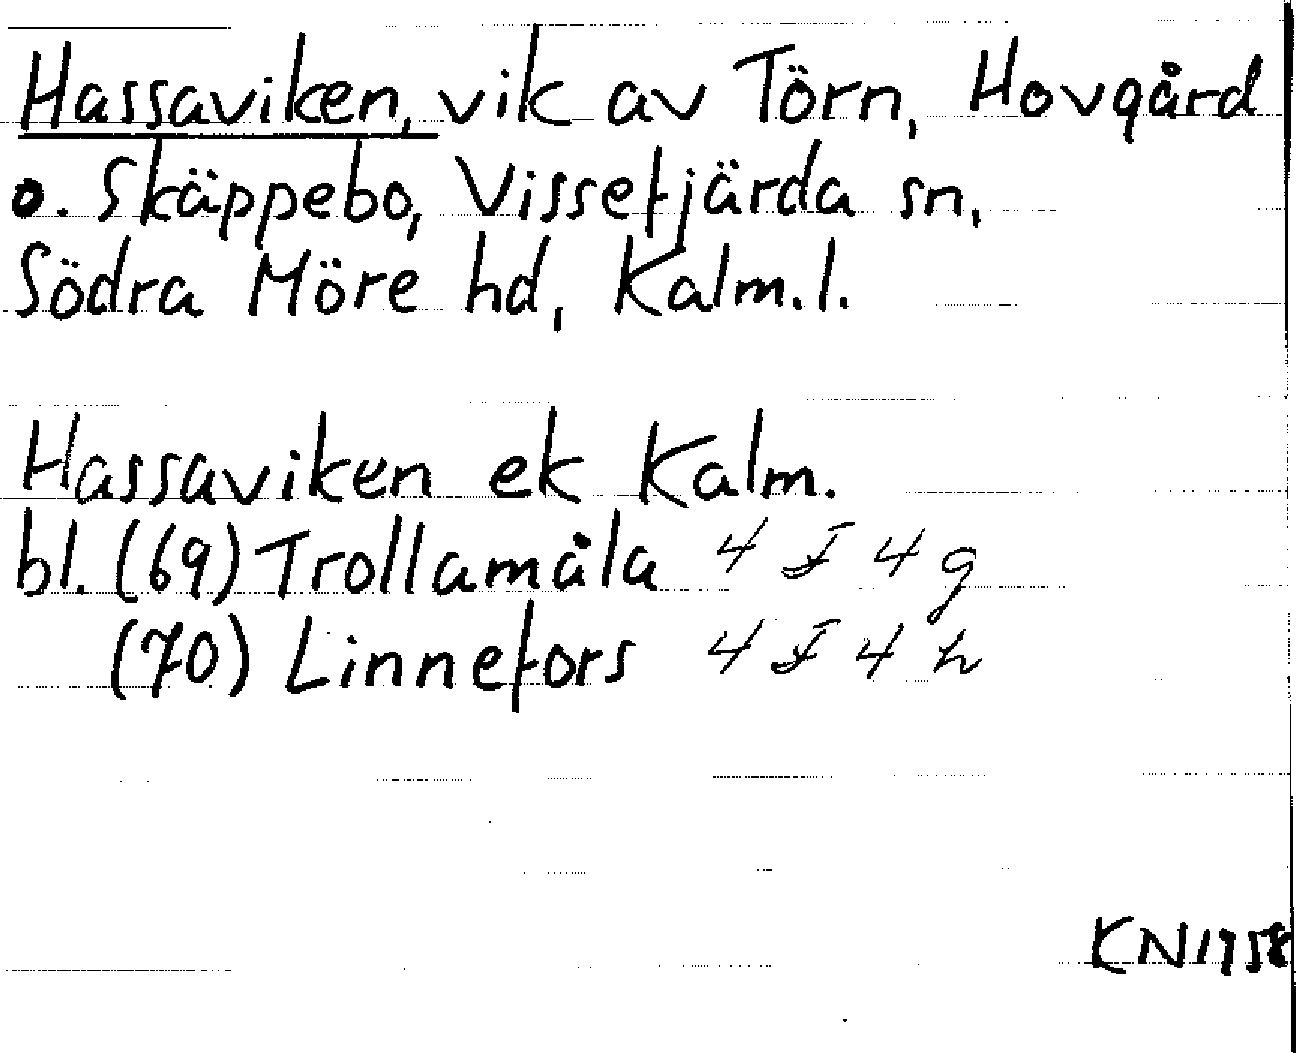 Hassaviken, vik av Törn, Hovgård
o. Skäppebo, Vissefjärda sn,
Södra Möre hd, Kalm.l.
Hassaviken ek Kalm.
bl. (69) Trollamåla 4 F 4 g
(70) Linnefors 4 F 4 h
KN 1958